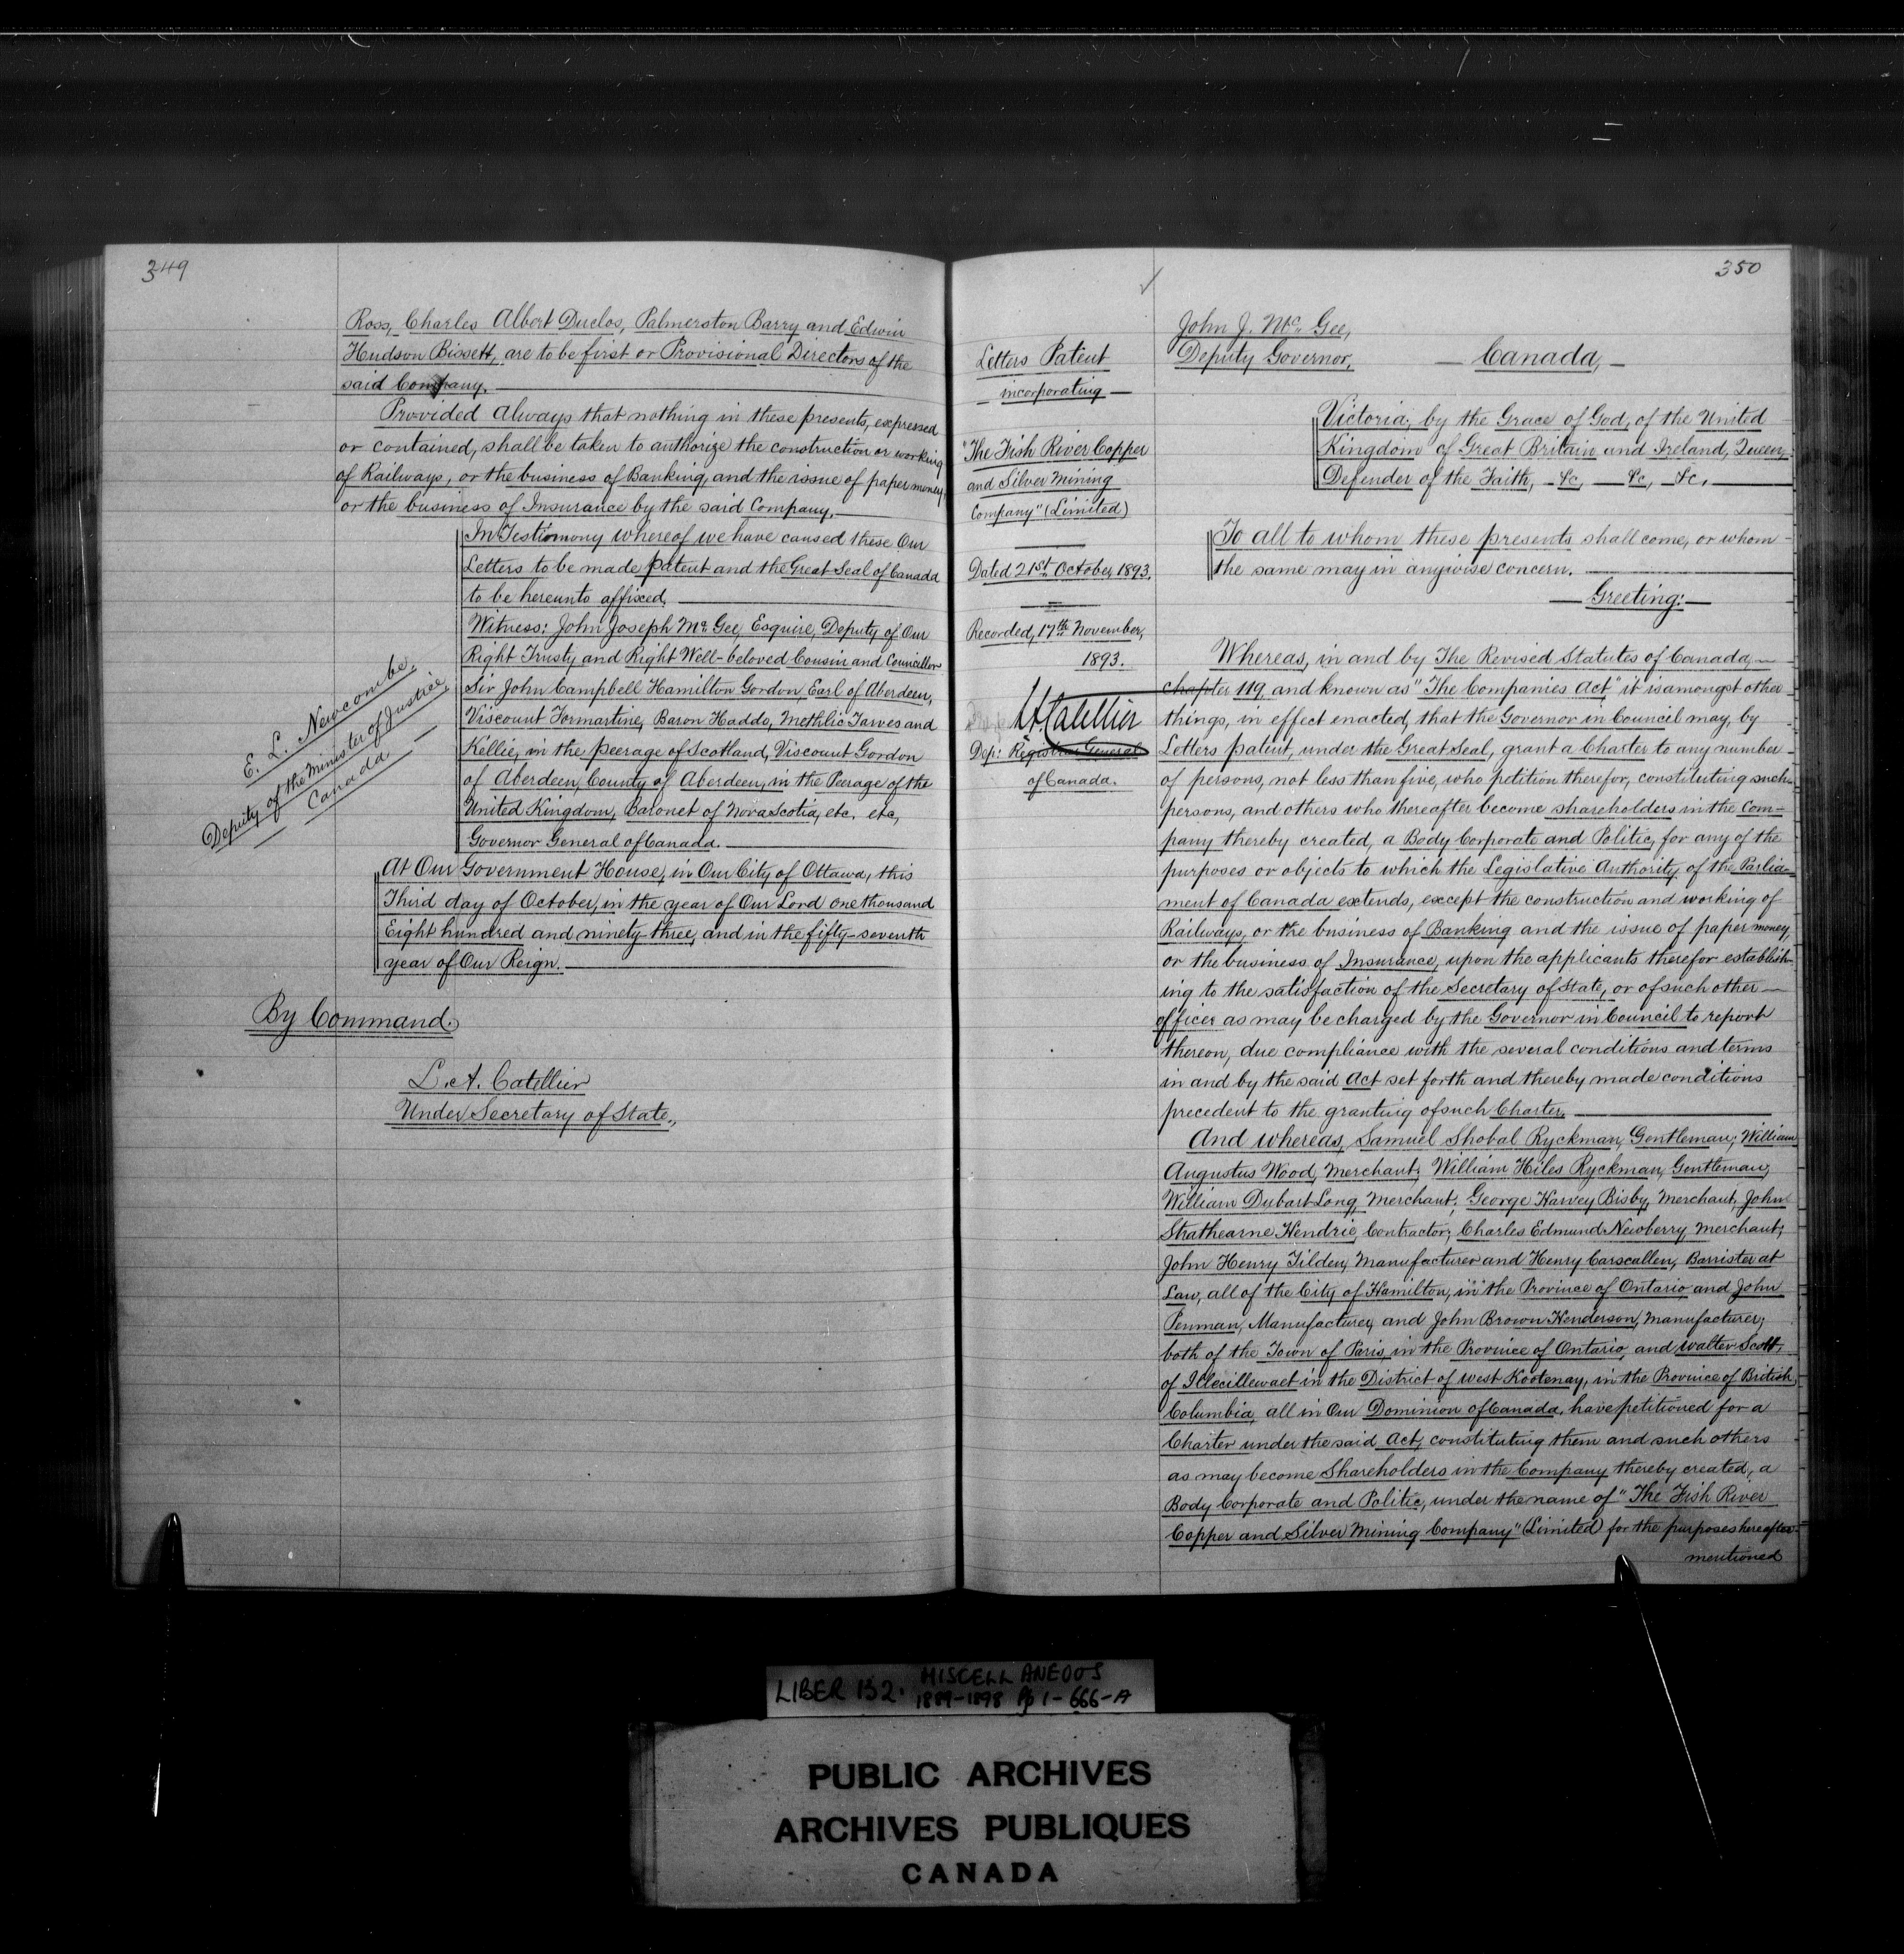 349
Ross, Charles Albert Duclos, Palmerston Barry and Edwin
Hudson Bissett, are to be first or Provisional Directors of the
said Company.
Provided Always that nothing in these presents, expressed
or contained, shall be taken to authorize the construction or working
of Railways, or the business of Banking, and the issue of paper money,
or the business of Insurance by the said Company.
In Testimony whereof we have caused these Our
Letters to be made patent and the Great Seal of Canada
to be hereunto affixed.
Witness: John Joseph McGee, Esquire, Deputy of Our
Right Trusty and Right Well-beloved Cousin and Councillor
Sir John Campbell Hamilton Gordon, Earl of Aberdeen,
Viscount Formartine, Baron Haddo, Methlic Tarves and
Kellie, in the peerage of Scotland, Viscount Gordon
of Aberdeen, County of Aberdeen, in the Peerage of the
United Kingdom, Baronet of Nova Scotia, etc. etc,
Governor General of Canada.
At Our Government House, in Our City of Ottawa, this
Third day of October, in the year of Our Lord one thousand
Eight hundred and ninety-three, and in the fifty-seventh
year of Our Reign.
E. L. Newcombe.
Deputy of the Minister of Justice,
Canada
By Command.
L. A. Catellier
Under Secretary of State.,
350
Letters Patent
incorporating
"The Fish River Copper
and Silver Mining
Company" (Limited)
Dated 21st October, 1893.
Recorded, 17th November,
1893.
LACatellier
Dep: Registrar General
of Canada.
John J. McGee,
Deputy Governor,
Canada,
Victoria, by the Grace of God, of the United
Kingdom of Great Britain and Ireland, Queen,
Defender of the Faith, &c, &c, &c,
To all to whom these presents shall come, or whom
the same may in anywise concern.
Greeting:
Whereas, in and by The Revised Statutes of Canada,
chapter 119, and known as "The Companies Act," it is amongst other
things, in effect enacted, that the Governor in Council may, by
Letters patent, under the Great Seal, grant a Charter to any number
of persons, not less than five, who petition therefor, constituting such
persons, and others who thereafter become shareholders in the Com-
pany thereby created, a Body Corporate and Politic, for any of the
purposes or objects to which the Legislative Authority of the Parlia-
ment of Canada extends, except the construction and working of
Railways, or the business of Banking and the issue of paper money,
or the business of Insurance, upon the applicants therefor establish-
ing to the satisfaction of the Secretary of State, or of such other
officer as may be charged by the Governor in Council to report
thereon, due compliance with the several conditions and terms
in and by the said Act set forth and thereby made conditions
precedent to the granting of such Charter.
And whereas, Samuel Shobal Ryckman, Gentleman; William
Augustus Wood, Merchant; William Hiles Ryckman, Gentleman;
William Dubart Long, Merchant; George Harvey Bisby, Merchant, John
Strathearne Hendrie, Contractor; Charles Edmund Newberry, Merchant;
John Henry Tilden, Manufacturer and Henry Carscallen, Barrister at
Law, all of the City of Hamilton, in the Province of Ontario, and John
Penman, Manufacturer, and John Brown Henderson, Manufacturer;
both of the Town of Paris, in the Province of Ontario, and Walter Scott,
of Illecillewaet in the District of West Kootenay, in the Province of British
Columbia, all in Our Dominion of Canada, have petitioned for a
Charter under the said Act, constituting them and such others
as may become Shareholders in the Company thereby created, a
Body Corporate and Politic, under the name of "The Fish River
Copper and Silver Mining Company" (Limited) for the purposes hereafter
mentioned
LIBER 132. MISCELLANEOUS
1889-1898 Pp 1-666-A
PUBLIC ARCHIVES
ARCHIVES PUBLIQUES
CANADA